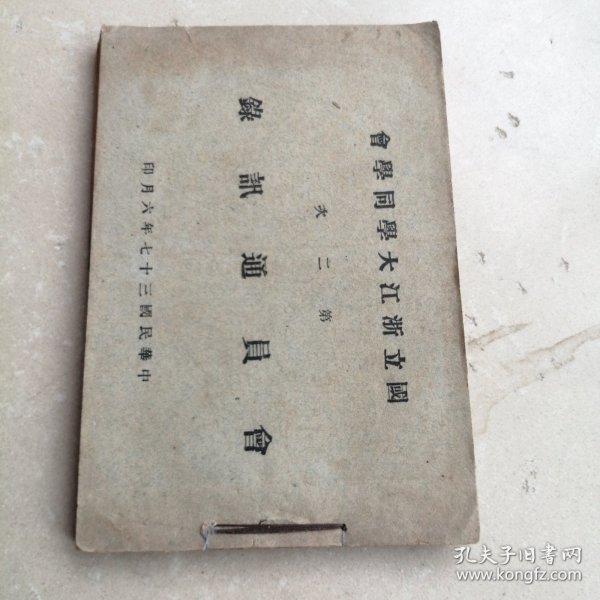 國立浙江大學同學會
第二次
會員通訊錄
中華民國三十七年六月印
孔夫子旧书网
www.kongfz.com